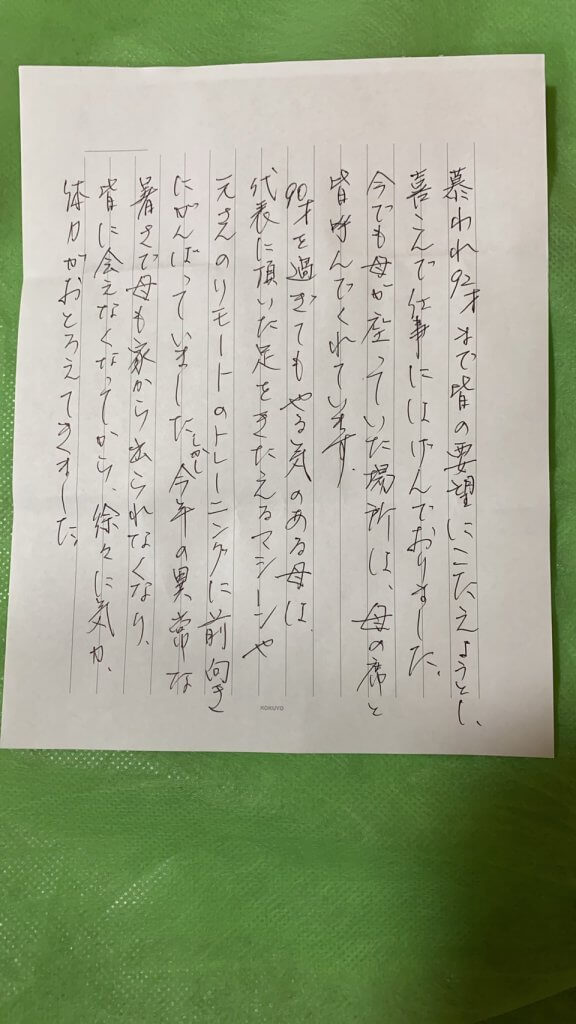 慕われ92才まで皆の要望にこたえようとし、
喜こんで仕事にはげんでおりました。
今でも母が座っていた場所は、母の席と
皆呼んでくれています。
90才を過ぎてもやる気のある母は
代表に頂いた足をきたえるマシーンや
元さんのリモートのトレーニングに前向き
にがんばっていました。しかし今年の異常な
暑さで母も家から出られなくなり、
皆に会えなくなってから、徐々に気力、
体力がおとろえてきました。
KOKUYO